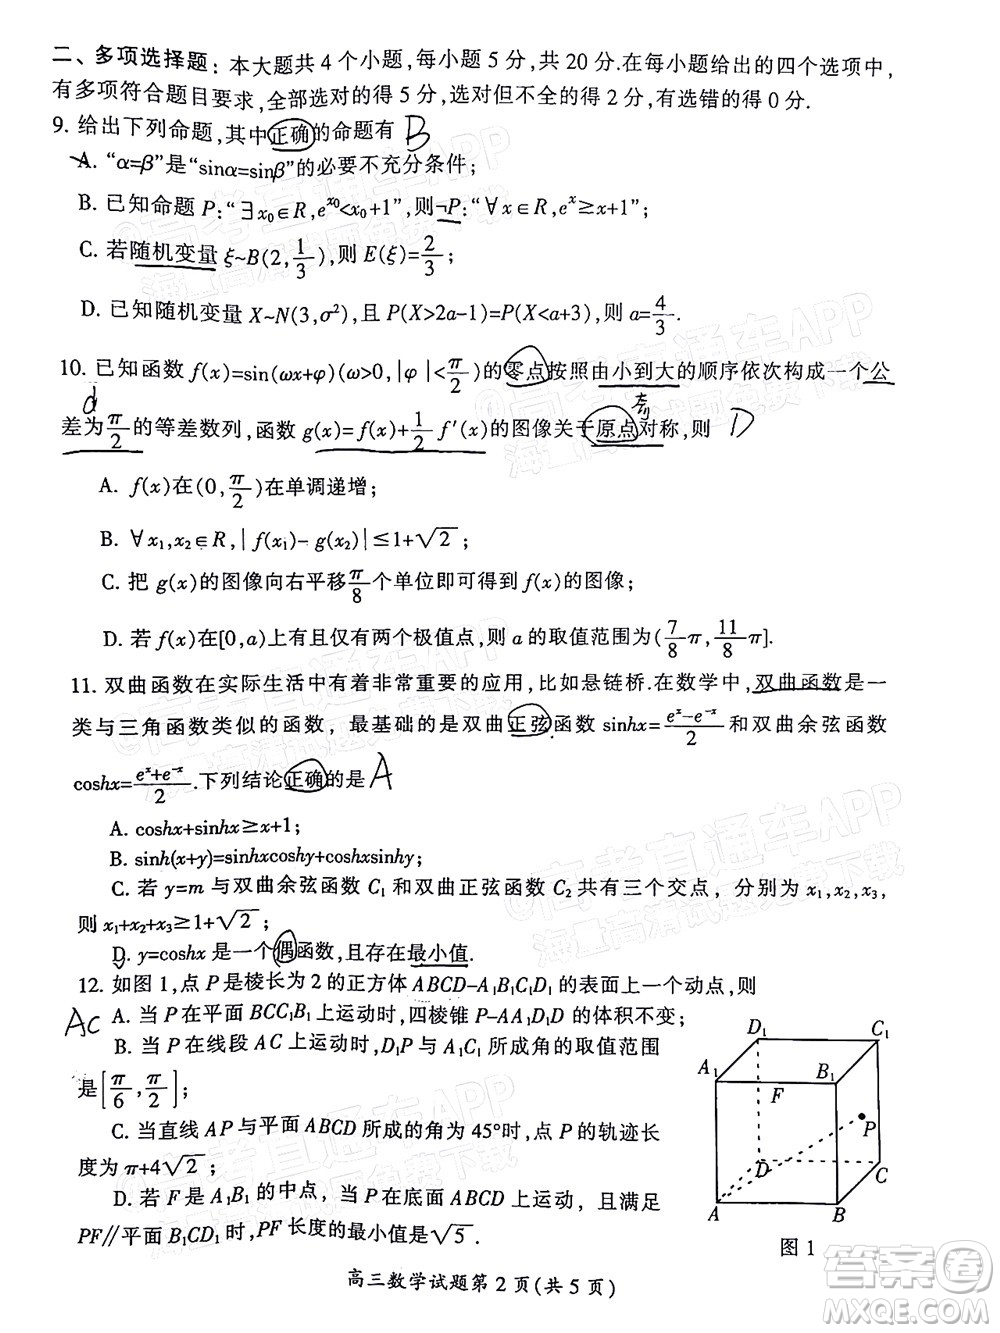 二、多项选择题：本大题共4个小题，每小题5分，共20分.在每小题给出的四个选项中，
有多项符合题目要求，全部选对的得5分，选对但不全的得2分，有选错的得0分.
9. 给出下列命题，其中正确的命题有 B
A. “α=β”是“sinα=sinβ”的必要不充分条件；
B. 已知命题 P：“∃x₀∈R,e^{x₀}<x₀+1”，则¬P：“∀x∈R,e^x≥x+1”；
C. 若随机变量 ξ~B(2,1/3)，则 E(ξ)=2/3；
D. 已知随机变量 X~N(3,σ²)，且 P(X>2a-1)=P(X<a+3)，则 a=4/3.
10. 已知函数 f(x)=sin(ωx+φ)(ω>0,|φ|<π/2)的零点按照由小到大的顺序依次构成一个公
d 奇
差为π/2的等差数列，函数 g(x)=f(x)+1/2 f′(x)的图像关于原点对称，则 D
A. f(x)在(0,π/2)在单调递增；
B. ∀x₁,x₂∈R,|f(x₁)-g(x₂)|≤1+√2；
C. 把 g(x)的图像向右平移π/8个单位即可得到 f(x)的图像；
D. 若 f(x)在[0,a)上有且仅有两个极值点，则 a 的取值范围为(7/8π,11/8π].
11. 双曲函数在实际生活中有着非常重要的应用，比如悬链桥.在数学中，双曲函数是一
类与三角函数类似的函数，最基础的是双曲正弦函数 sinhx=(e^x-e^{-x})/2 和双曲余弦函数
coshx=(e^x+e^{-x})/2.下列结论正确的是 A
A. coshx+sinhx≥x+1；
B. sinh(x+y)=sinhxcoshy+coshxsinhy；
C. 若 y=m 与双曲余弦函数 C₁ 和双曲正弦函数 C₂ 共有三个交点，分别为 x₁,x₂,x₃，
则 x₁+x₂+x₃≥1+√2；
D. y=coshx 是一个偶函数，且存在最小值.
12. 如图1，点 P 是棱长为2的正方体 ABCD-A₁B₁C₁D₁ 的表面上一个动点，则
AC
A. 当 P 在平面 BCC₁B₁ 上运动时，四棱锥 P-AA₁D₁D 的体积不变；
B. 当 P 在线段 AC 上运动时，D₁P 与 A₁C₁ 所成角的取值范围
是[π/6,π/2]；
C. 当直线 AP 与平面 ABCD 所成的角为45°时，点 P 的轨迹长
度为π+4√2；
D. 若 F 是 A₁B₁ 的中点，当 P 在底面 ABCD 上运动，且满足
PF∥平面 B₁CD₁ 时，PF 长度的最小值是√5.
D₁ C₁
A₁ B₁
F
P
D C
A B
图1
高三数学试题第2页(共5页)
@高考直通车APP
海量高清试题免费下载
答案圈
MXQE.COM